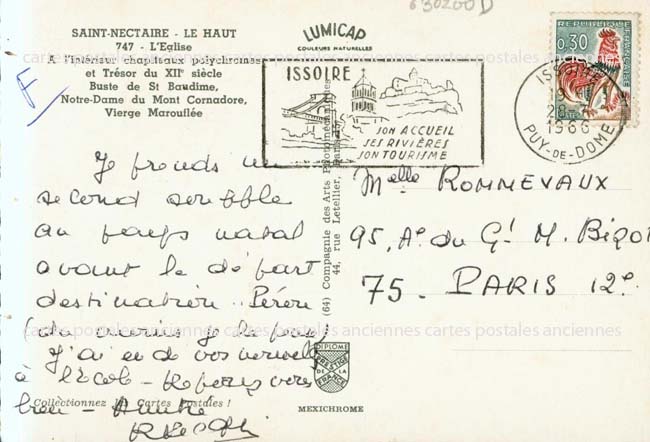 630200D
SAINT-NECTAIRE - LE HAUT
747 - L'Eglise
A l'intérieur chapiteaux polychromes
et Trésor du XIIe siècle
Buste de St Baudime,
Notre-Dame du Mont Cornadore,
Vierge Marouflée
LUMICAP
COULEURS NATURELLES
ISSOIRE
SON ACCUEIL
SES RIVIÈRES
SON TOURISME
REPUBLIQUE FRANÇAISE
0,30
POSTES
ISSOIRE
1966
PUY-DE-DOME
F
Je prends un
second souffle
au pays natal
avant le départ
destination
J'ai eu de vos
à l'école
bien
Melle ROMMEVAUX
95, Ae du Gl M. Bizot
75 - PARIS 12e
(64) Compagnie des Arts Photomécaniques
44, rue Letellier, Paris
DIPLOME
PRESTIGE
DE LA
FRANCE
MEXICHROME
Collectionnez les Cartes Postales !
cartes postales anciennes cartes postales anciennes cartes postales anciennes